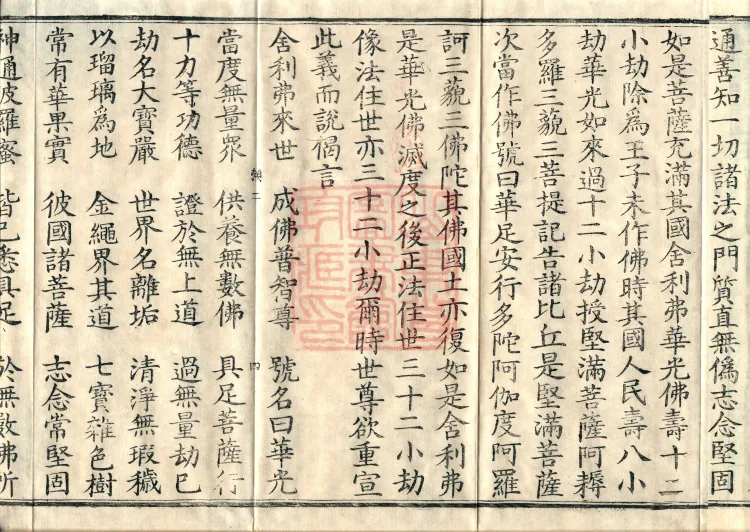 通善知一切諸法之門質直無偽志念堅固
如是菩薩充滿其國舍利弗華光佛壽十二
小劫除為王子未作佛時其國人民壽八小
劫華光如來過十二小劫授堅滿菩薩阿耨
多羅三藐三菩提記告諸比丘是堅滿菩薩
次當作佛號曰華足安行多陀阿伽度阿羅
訶三藐三佛陀其佛國土亦復如是舍利弗
是華光佛滅度之後正法住世三十二小劫
像法住世亦三十二小劫爾時世尊欲重宣
此義而說偈言
舍利弗來世 成佛普智尊 號名曰華光
當度無量眾 供養無數佛 具足菩薩行
十力等功德 證於無上道 過無量劫已
劫名大寶嚴 世界名離垢 清淨無瑕穢
以瑠璃為地 金繩界其道 七寶雜色樹
常有華果實 彼國諸菩薩 志念常堅固
神通波羅蜜 皆已悉具足 於無數佛所